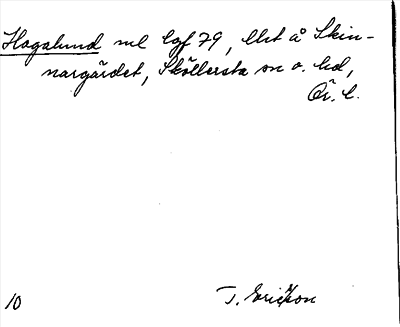 Hagalund ml lgf 79, Urt å Skin-
nargärdet, Sköllersta sn o. hd,
Ör. l.
T. Ericson
10